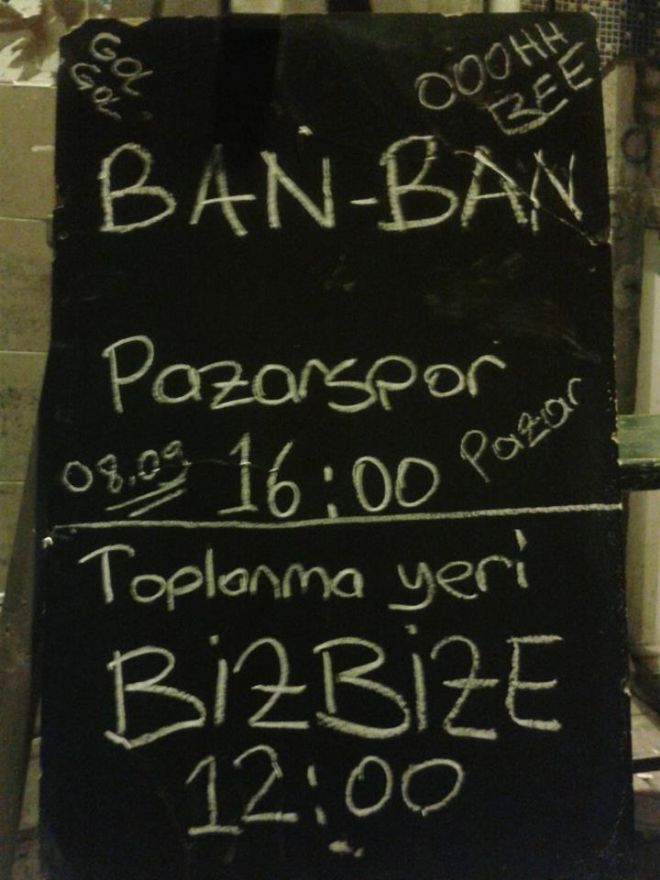 GOL
GOL
OOOHH
BEE
BAN-BAN
Pazarspor
08.09 16:00 Pazar
Toplanma yeri
BİZBİZE
12:00